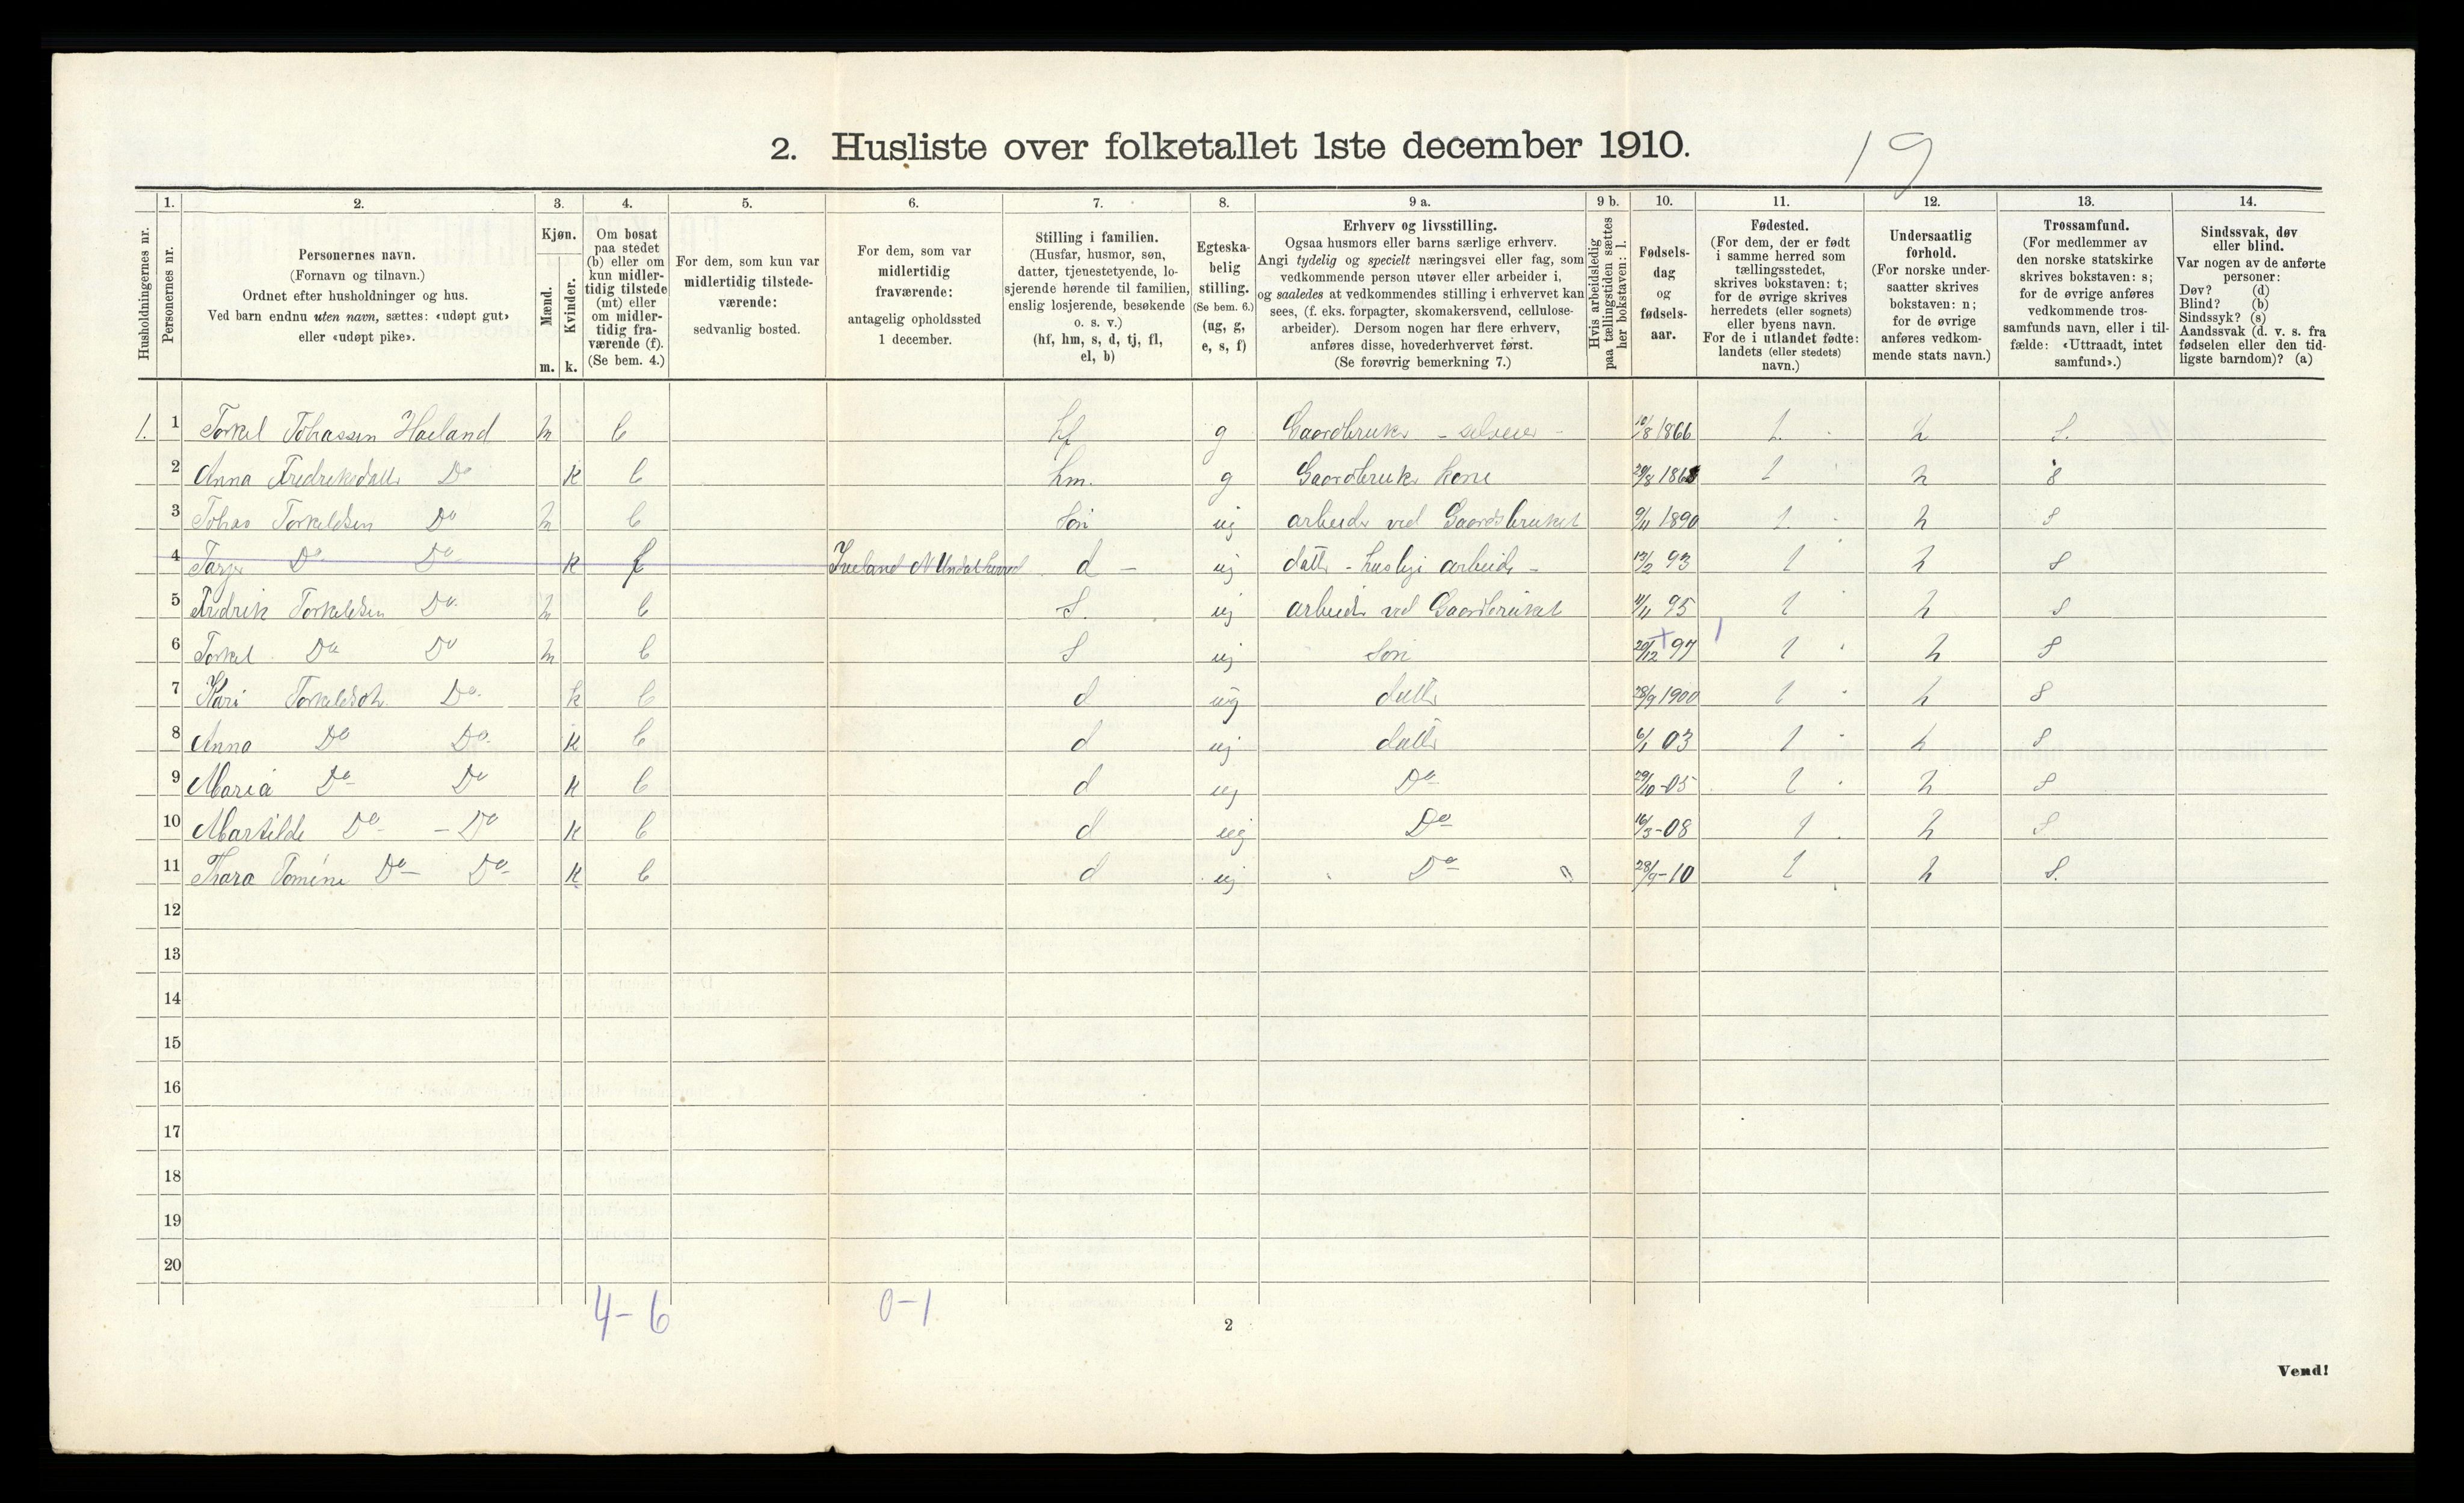 2. Husliste over folketallet 1ste december 1910.
19
Husholdningernes nr.
1. Personernes nr.
2. Personernes navn.
(Fornavn og tilnavn.)
Ordnet efter husholdninger og hus.
Ved barn endnu uten navn, sættes: «udøpt gut»
eller «udøpt pike».
3. Kjøn.
Mænd. Kvinder.
m. k.
4. Om bosat
paa stedet
(b) eller om
kun midler-
tidig tilstede
(mt) eller
om midler-
tidig fra-
værende (f).
(Se bem. 4.)
5. For dem, som kun var
midlertidig tilstede-
værende:
sedvanlig bosted.
6. For dem, som var
midlertidig
fraværende:
antagelig opholdssted
1 december.
7. Stilling i familien.
(Husfar, husmor, søn,
datter, tjenestetyende, lo-
sjerende hørende til familien,
enslig losjerende, besøkende
o. s. v.)
(hf, hm, s, d, tj, fl,
el, b)
8. Egteska-
belig
stilling.
(Se bem. 6.)
(ug, g,
e, s, f)
9 a. Erhverv og livsstilling.
Ogsaa husmors eller barns særlige erhverv.
Angi tydelig og specielt næringsvei eller fag, som
vedkommende person utøver eller arbeider i,
og saaledes at vedkommendes stilling i erhvervet kan
sees, (f. eks. forpagter, skomakersvend, cellulose-
arbeider). Dersom nogen har flere erhverv,
anføres disse, hovederhvervet først.
(Se forøvrig bemerkning 7.)
9 b. Hvis arbeidsledig
paa tællingstiden sættes
her bokstaven: l.
10. Fødsels-
dag
og
fødsels-
aar.
11. Fødested.
(For dem, der er født
i samme herred som
tællingsstedet,
skrives bokstaven: t;
for de øvrige skrives
herredets (eller sognets)
eller byens navn.
For de i utlandet fødte:
landets (eller stedets)
navn.)
12. Undersaatlig
forhold.
(For norske under-
saatter skrives
bokstaven: n;
for de øvrige
anføres vedkom-
mende stats navn.)
13. Trossamfund.
(For medlemmer av
den norske statskirke
skrives bokstaven: s;
for de øvrige anføres
vedkommende tros-
samfunds navn, eller i til-
fælde: «Uttraadt, intet
samfund».)
14. Sindssvak, døv
eller blind.
Var nogen av de anførte
personer:
Døv? (d)
Blind? (b)
Sindssyk? (s)
Aandssvak (d. v. s. fra
fødselen eller den tid-
ligste barndom)? (a)
1. 1 Torkel Tobiassen Haaland m b hf g Gaardbruker - selveier - 10/8 1866 t. n s.
2 Anna Fredriksdatter Do k b hm. g Gaardbruker kone 29/8 186 t n s
3 Tobias Torkeldsen Do m b Søn ug arbeider ved Gaardsbruket 9/11 1890 t. n s
4 Do Do k f N Undal herred d - ug datter - huslige arbeide - 13/2 93 t n s
5 Fredrik Torkeldsen Do m b s. ug arbeider ved Gaardbruket 11/11 95 t n s
6 Torkel Do Do m b s ug Søn 29/12 97 t n s
7 Kari Torkeldsdtr Do k b d ug datter 28/9 1900 t n s
8 Anna Do Do k b d ug datter 6/1 03 t n s
9 Maria Do Do k b d ug Do 29/10-05 t n s
10 Martilde Do - Do k b d ug Do 16/3-08 t n s
11 Thara Tomine Do Do k b d ug Do 28/9-10 t n s.
12
13
14
15
16
17
18
19
20
4-6 0-1
2
Vend!